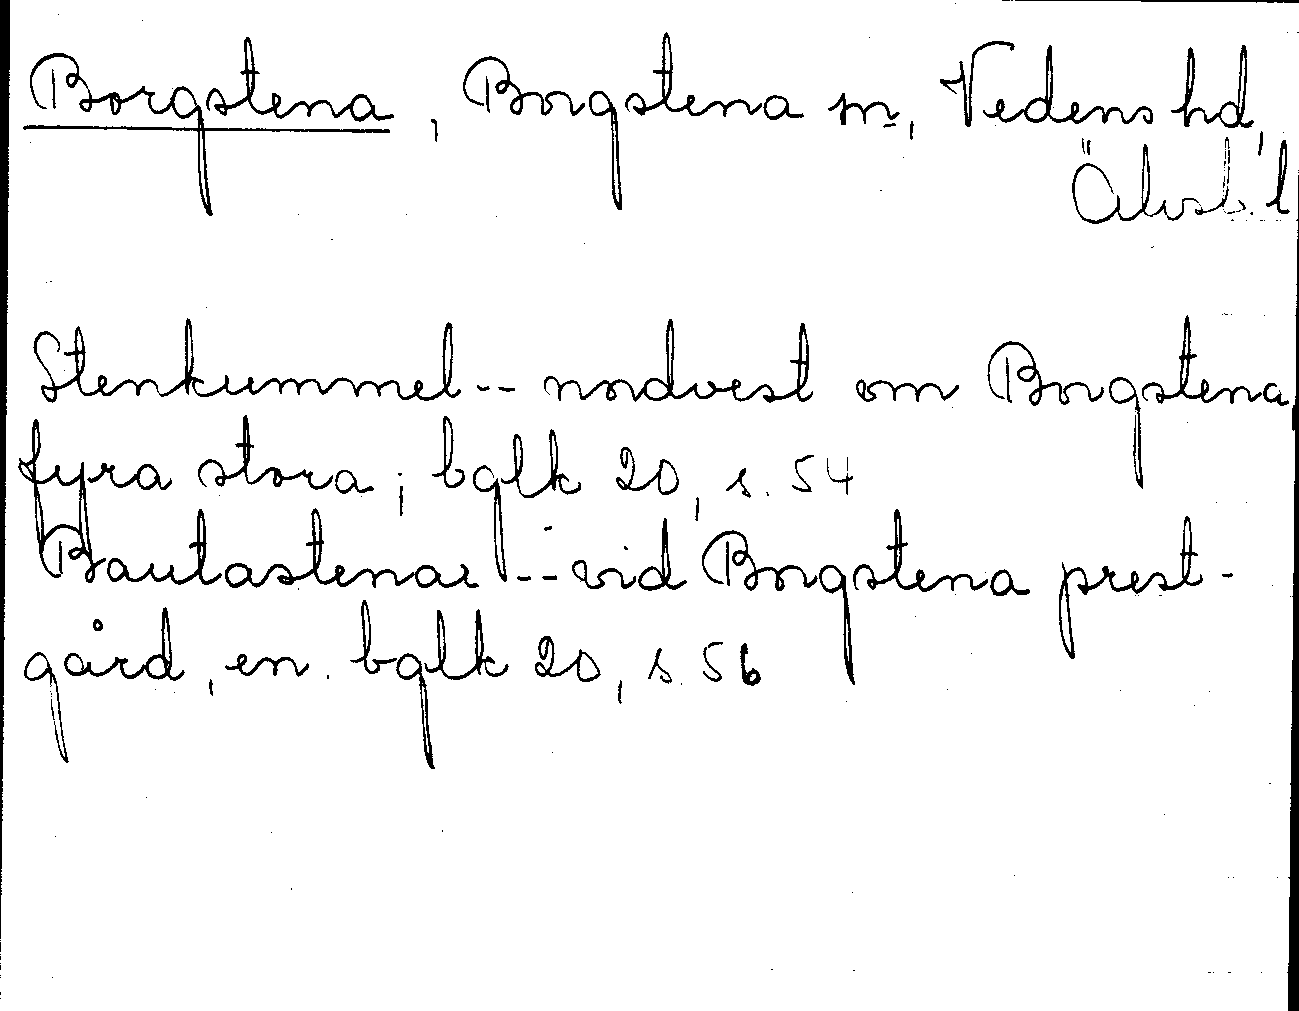 Borgstena, Borgstena sn, Vedens hd,
Älvsb. l
Stenkummel -- nordvest om Borgstena
fyra stora; bglk 20, s. 54
Bautastenar -- vid Borgstena prest-
gård, en. bglk 20, s. 56